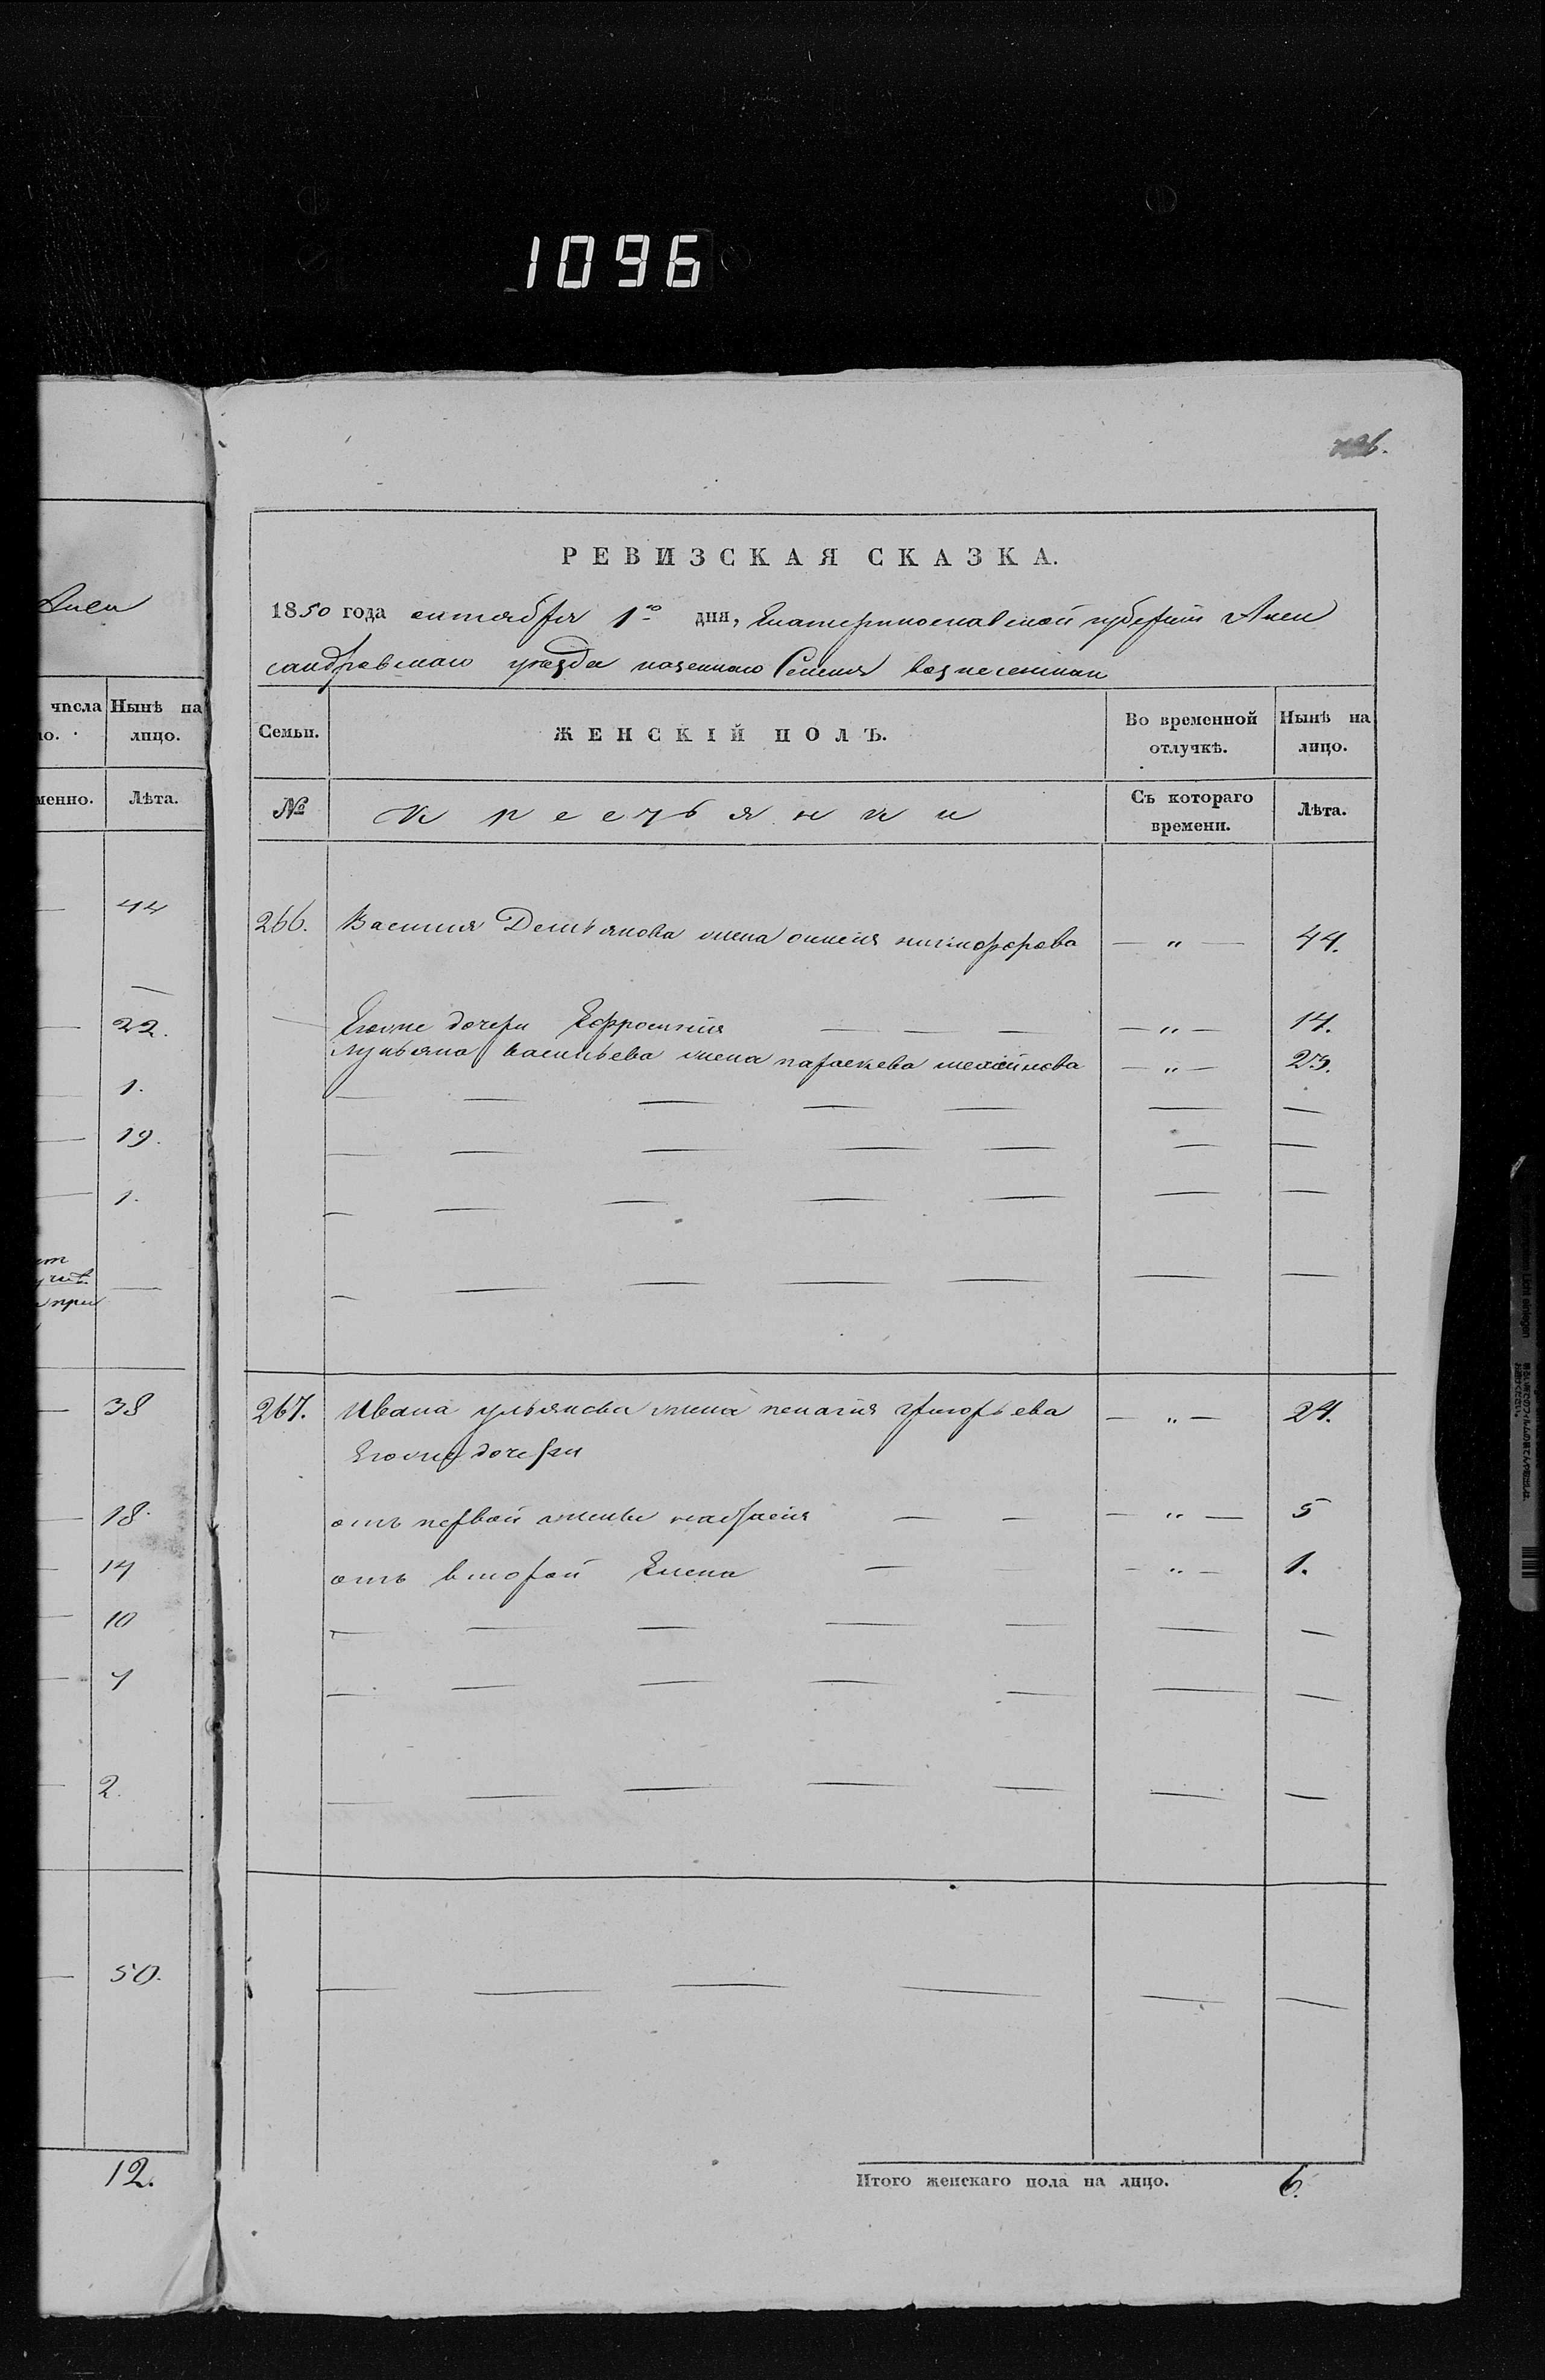 1096
Алек
числа Нынѣ на
ло. лицо.
менно. Лѣта.
44
—
22.
1.
19.
1.
при
—
38
18.
14
10
7
2.
50.
12.
РЕВИЗСКАЯ СКАЗКА.
1850 года октября 1го дня, Екатеринославской губернии Алек
сандровскаго уезда казеннаго Селения вознесенки
Семьи. ЖЕНСКІЙ ПОЛЪ. Во временной отлучкѣ. Нынѣ на лицо.
№ Крестьянки Съ котораго времени. Лѣта.
266. Василия Демьянова жена оксения никифорова — „ — 44.
Егоже дочери Ефросиния — — — — „ — 14.
лукьяна васильева жена параскева — „ — 23.
267. Ивана ульянова жена пелагия григорьева — „ — 24.
Егоже дочери
отъ первой жены — — — „ — 5
отъ второй Елена — — — „ — 1.
Итого женскаго пола на лицо. 6.